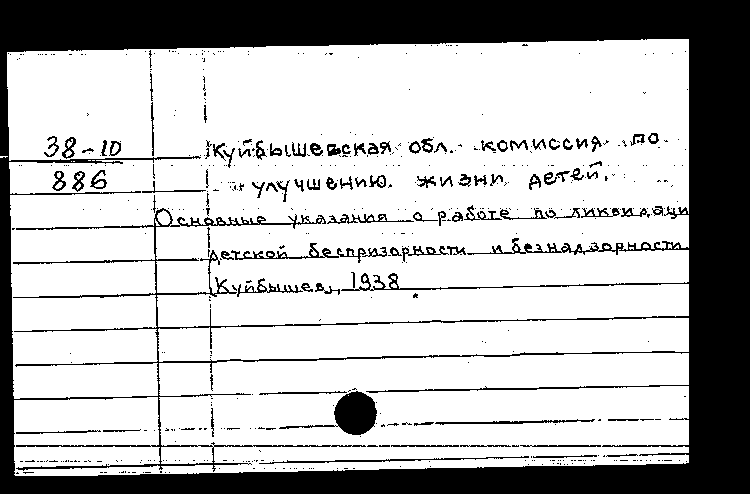 38-10
886
Куйбышевская обл. комиссия по
улучшению жизни детей.
Основные указания о работе по ликвидаци
детской беспризорности и безнадзорности
Куйбышев, 1938.